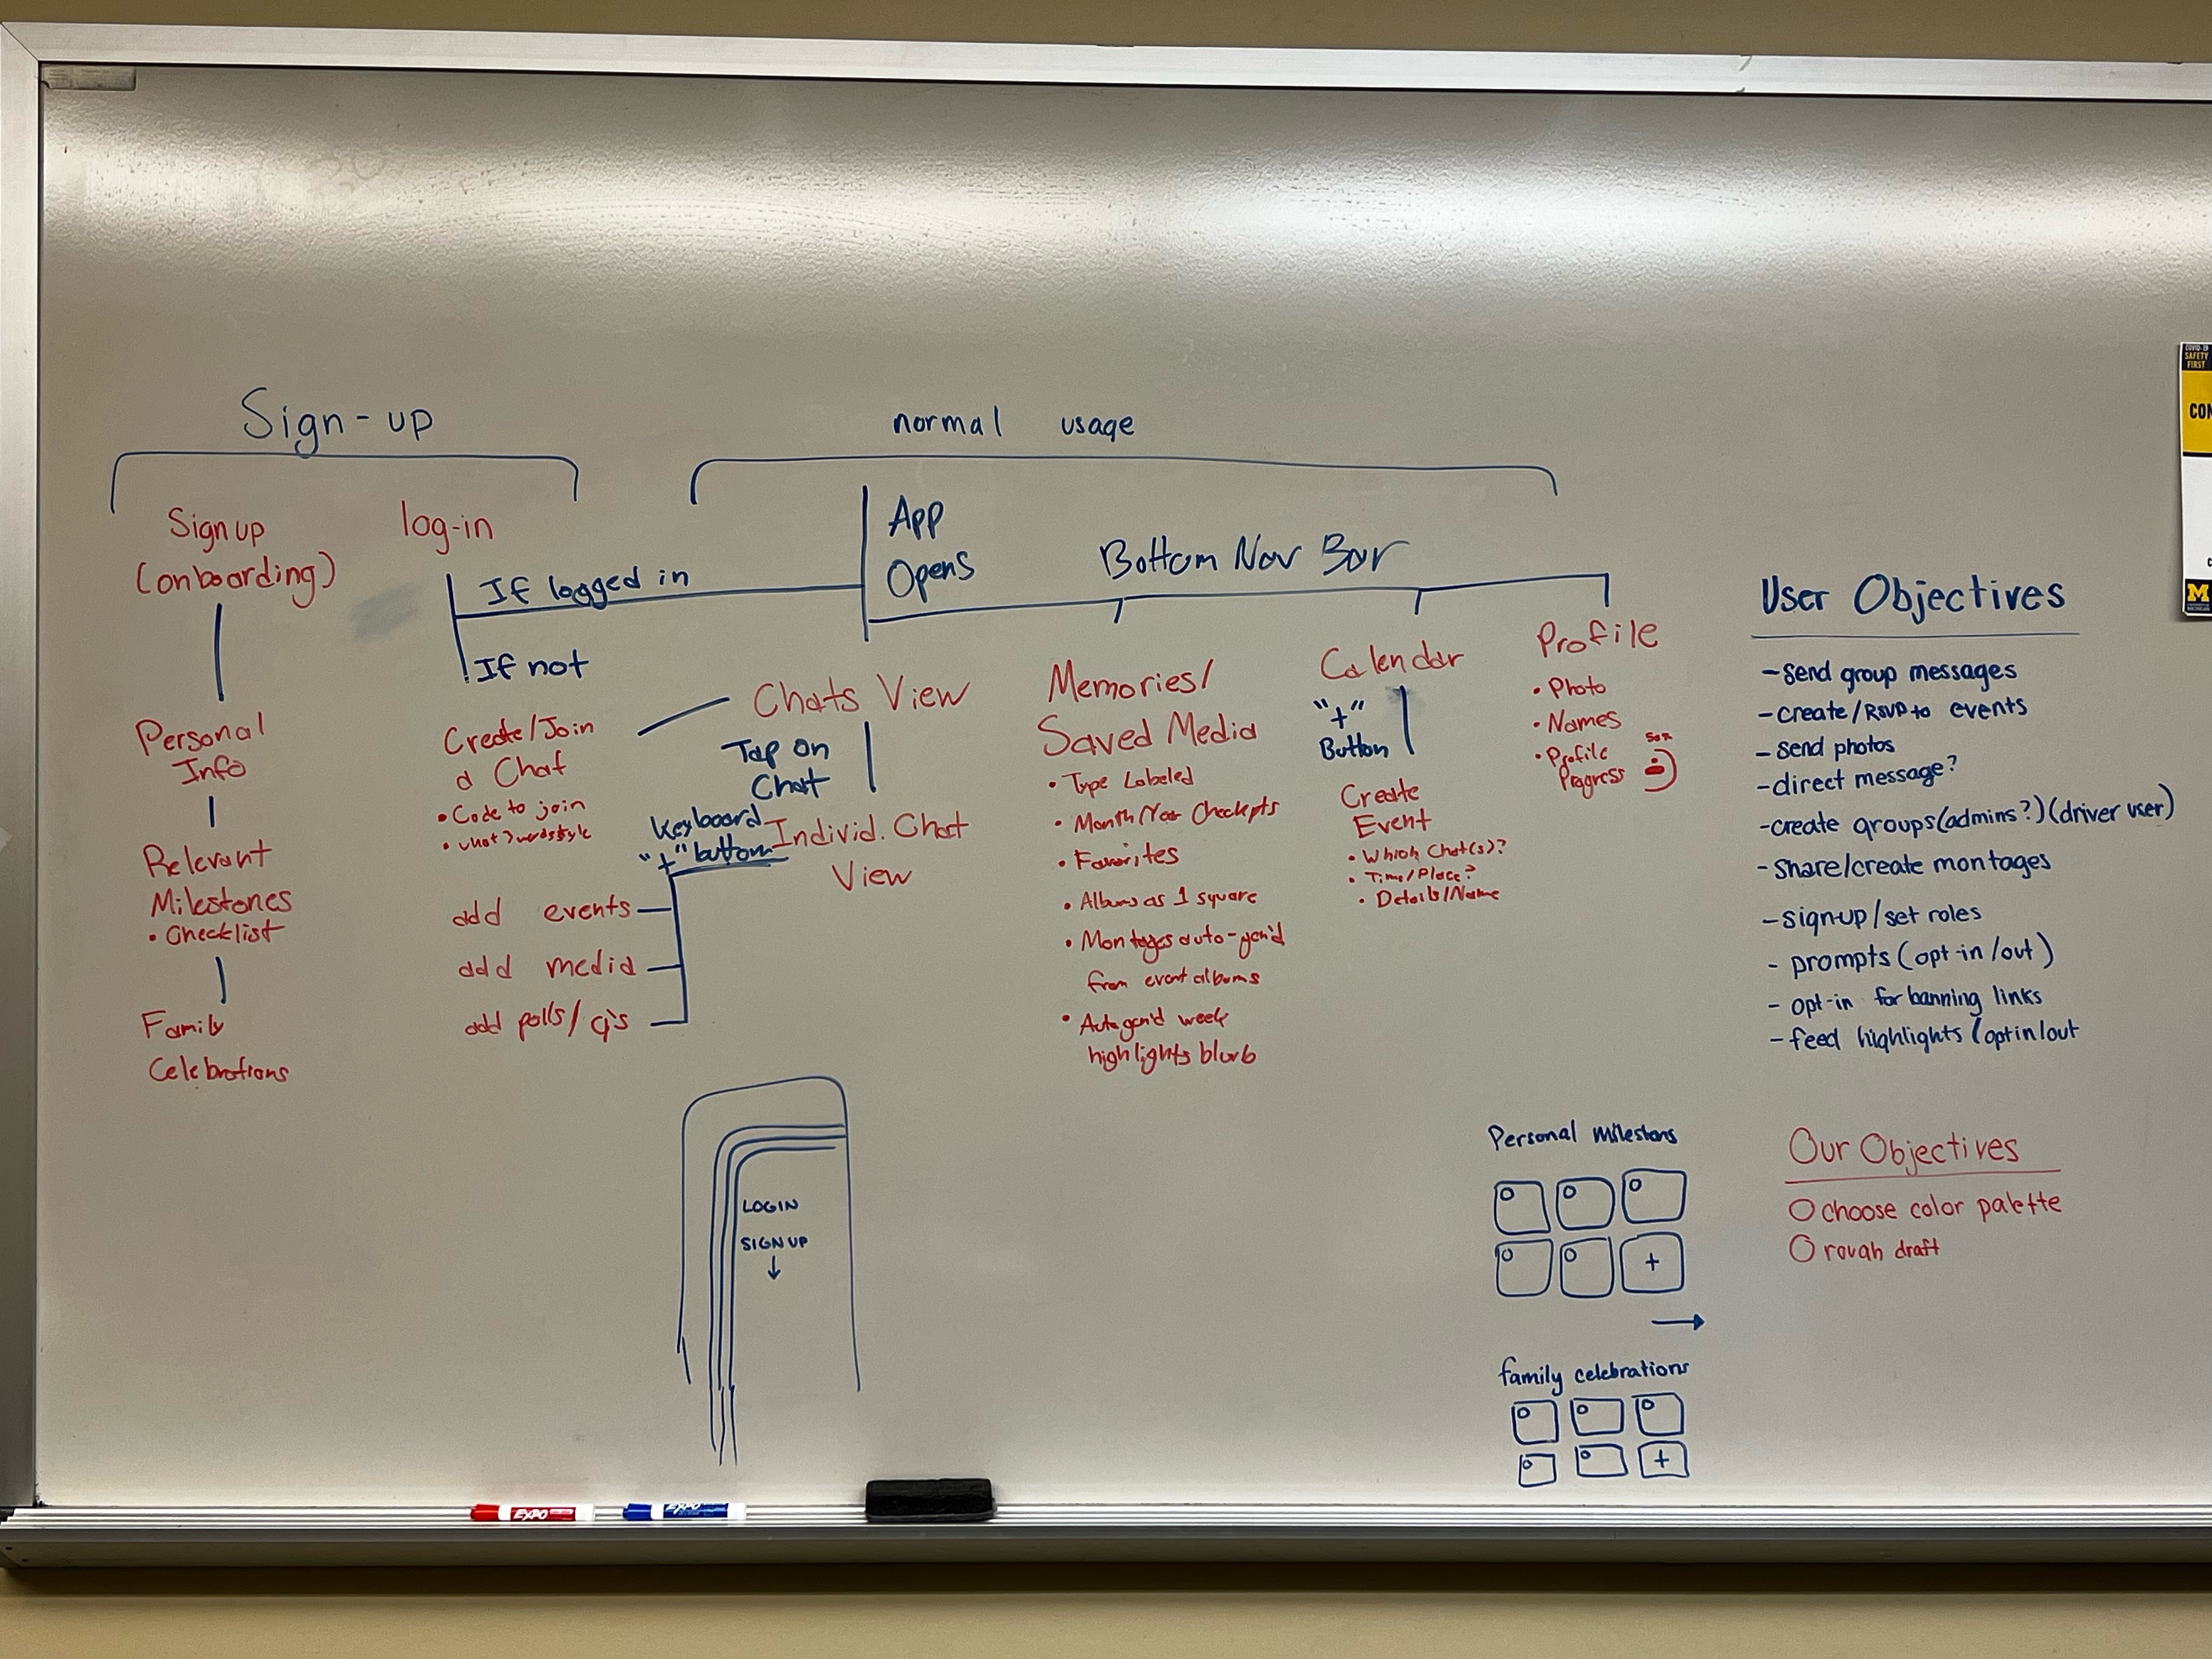 Sign-up
Sign up
(onboarding)
Personal
Info
Relevant
Milestones
• Checklist
Family
Celebrations
log-in
If logged in
If not
Create/Join
a Chat
• Code to join
• what 3 words style
normal usage
App
Opens
Bottom Nav Bar
Chats View
Tap on
Chat
Individ. Chat
View
Keyboard
"+" button
add events
add media
add polls/q's
Memories/
Saved Media
• Type Labeled
• Month/Year Checkpts
• Favorites
• Albums as 1 square
• Montages auto-gen'd
from event albums
• Auto gen'd week
highlights blurb
Calendar
"+"
Button
Create
Event
• Which Chat(s)?
• Time/Place?
• Details/Name
Profile
• Photo
• Names
• Profile
Progress
User Objectives
- send group messages
- create/RSVP to events
- send photos
- direct message?
- create groups (admins?) (driver user)
- share/create montages
- sign-up/set roles
- prompts (opt-in/out)
- opt-in for banning links
- feed highlights (opt in/out
Our Objectives
choose color palette
rough draft
LOGIN
SIGN UP
↓
Personal milestons
+
→
family celebrations
+
EXPO
EXPO
COVID-19
SAFETY
FIRST
CON
M